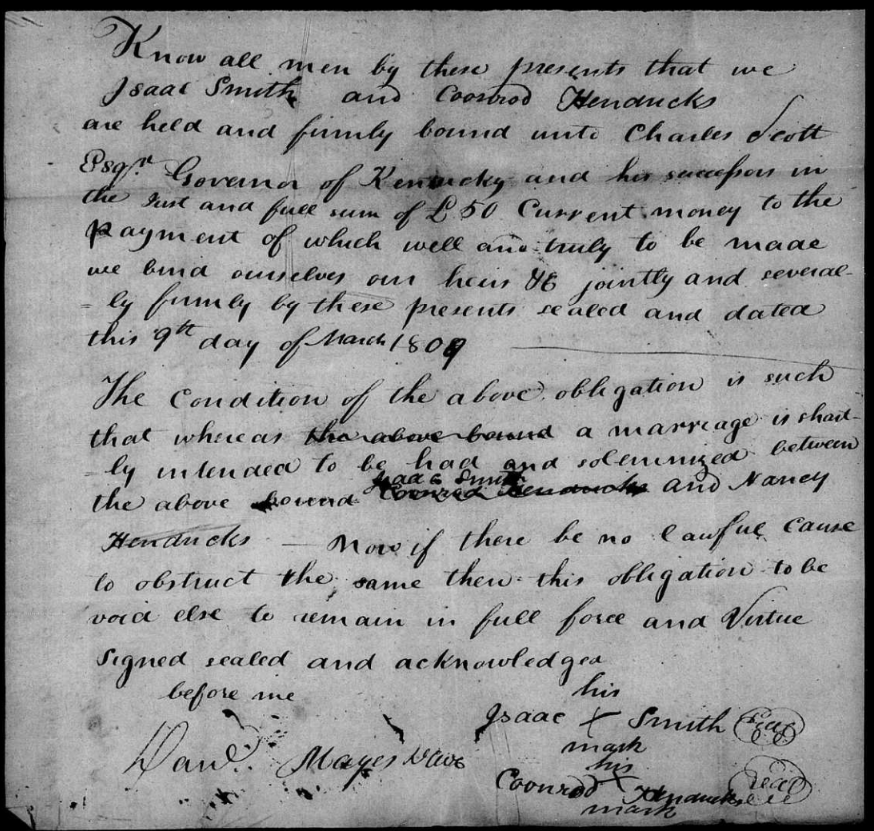 Know all men by these presents that we
Isaac Smith and Coonrod Hendricks
are held and firmly bound unto Charles Scott
Esqr. Governor of Kentucky and his successors in
the Just and full sum of £50 Current money to the
payment of which well and truly to be made
we bind ourselves our heirs &c jointly and several-
-ly firmly by these presents sealed and dated
this 9th day of March 1809
The Condition of the above obligation is such
that whereas the above bound a marriage is short-
-ly intended to be had and solemnized between
Isaac Smith
the above bound Coonrod Hendricks and Nancy
Hendricks — Now if there be no lawful Cause
to obstruct the same then this obligation to be
void else to remain in full force and Virtue
Signed sealed and acknowledged
before me
his
Isaac X Smith Seal
mark
Mayes
his
Coonrod X Hendricks Seal
mark